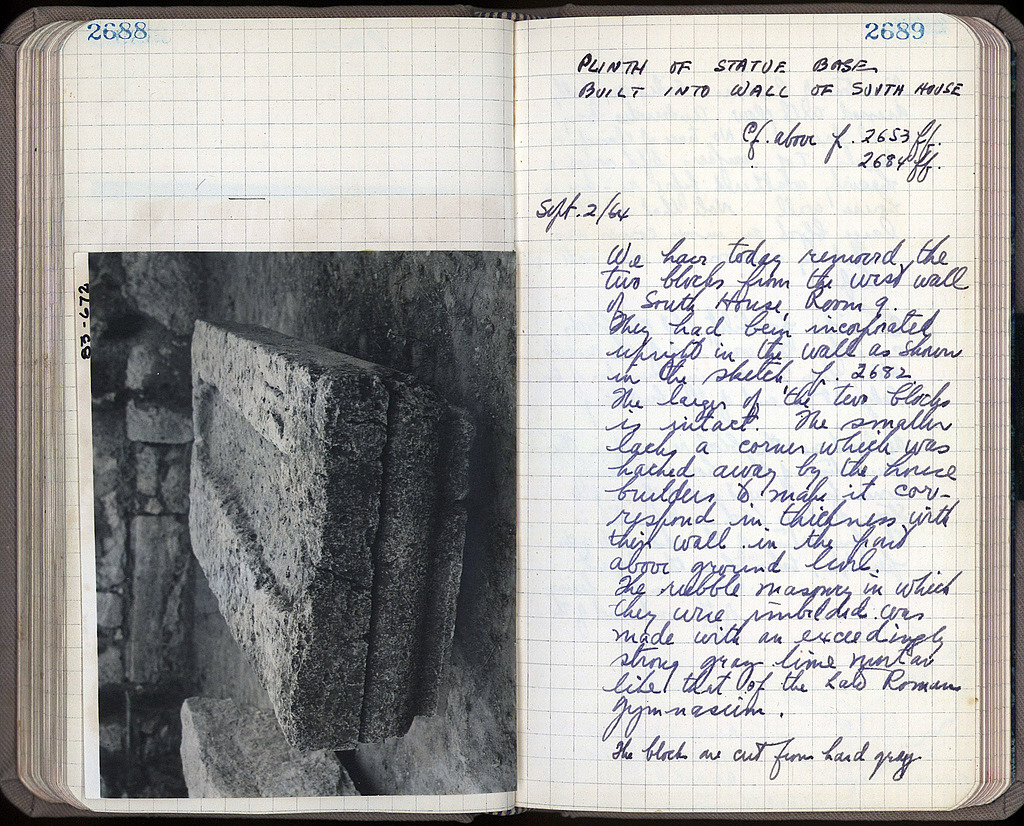 2688
83-672
2689
PLINTH OF STATUE BASE
BUILT INTO WALL OF SOUTH HOUSE
Cf. above p. 2653 ff.
2684 ff.
Sept. 2/64
We have today removed the
two blocks from the west wall
of South House, Room 9.
They had been incorporated
upright in the wall as shown
in the sketch p. 2682
The larger of the two blocks
is intact. The smaller
lacks a corner which was
hacked away by the house
builders to make it cor-
respond in thickness with
their wall in the part
above ground level.
The rubble masonry in which
they were imbedded was
made with an exceedingly
strong gray lime mortar
like that of the Late Roman
Gymnasium.
The blocks are cut from hard gray